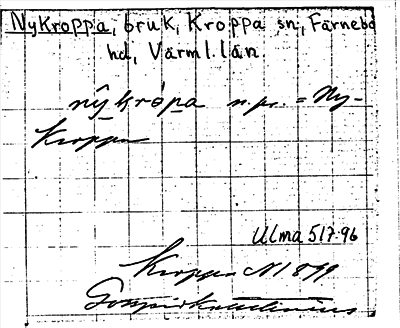 Nykroppa, bruk, Kroppa sn, Färnebo
hd, Värml. län.
nŷkrópa n.pr. = Ny-
Kroppa
Ulma 517:96
Kroppa 1899